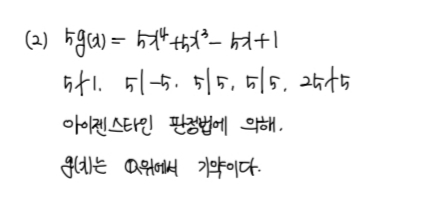 (2) 5g(x) = 5x⁴+5x³-5x+1
5∤1. 5|-5. 5|5, 5|5, 25∤5
아이젠스타인 판정법에 의해.
g(x)는 ℚ위에서 기약이다.